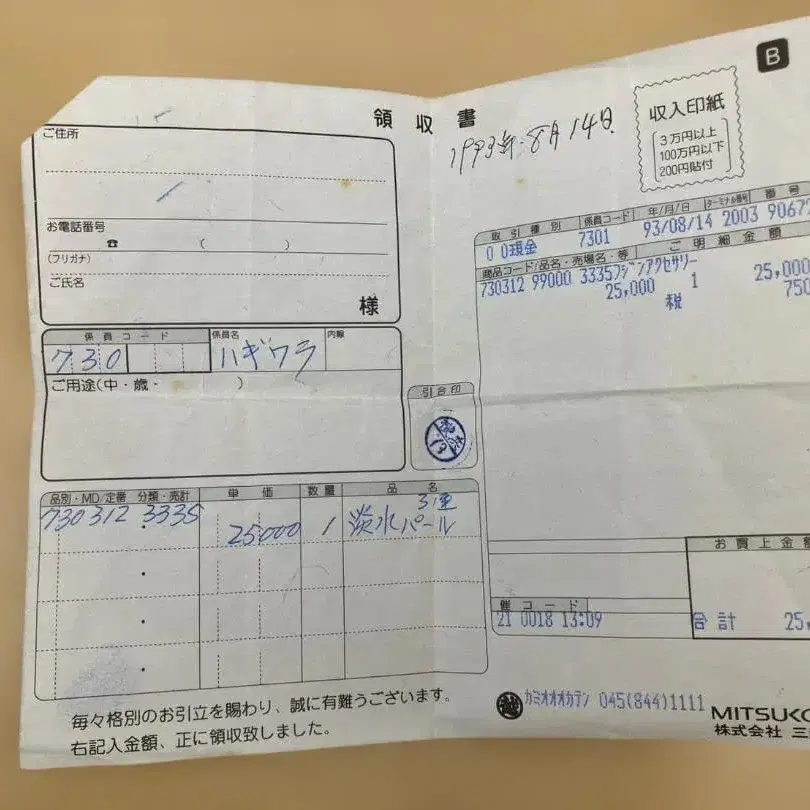 B
領収書
1993年.8月14日
収入印紙
3万円以上
100万円以下
200円貼付
ご住所
お電話番号
☎ ( )
(フリガナ)
ご氏名
様
係員コード 係員名 内線
730 ハギワラ
ご用途(中・歳・ )
引合印
品別・MD/定番 分類・売計 単価 数量 品名
730312 3335 25000 1 3連
淡水パール
毎々格別のお引立を賜わり、誠に有難うございます。
右記入金額、正に領収致しました。
取引種別 係員コード 年/月/日 ターミナル番号 番号
00現金 7301 93/08/14 2003 9067
商品コード/品名・売場名・等 ご明細金額
730312 99000 3335フジンアクセサリー
25,000 1 25,000
税 750
お買上金額
催コード
21 0018 13:09
合計 25,
カミオオオカテン 045(844)1111
MITSUKO
株式会社 三